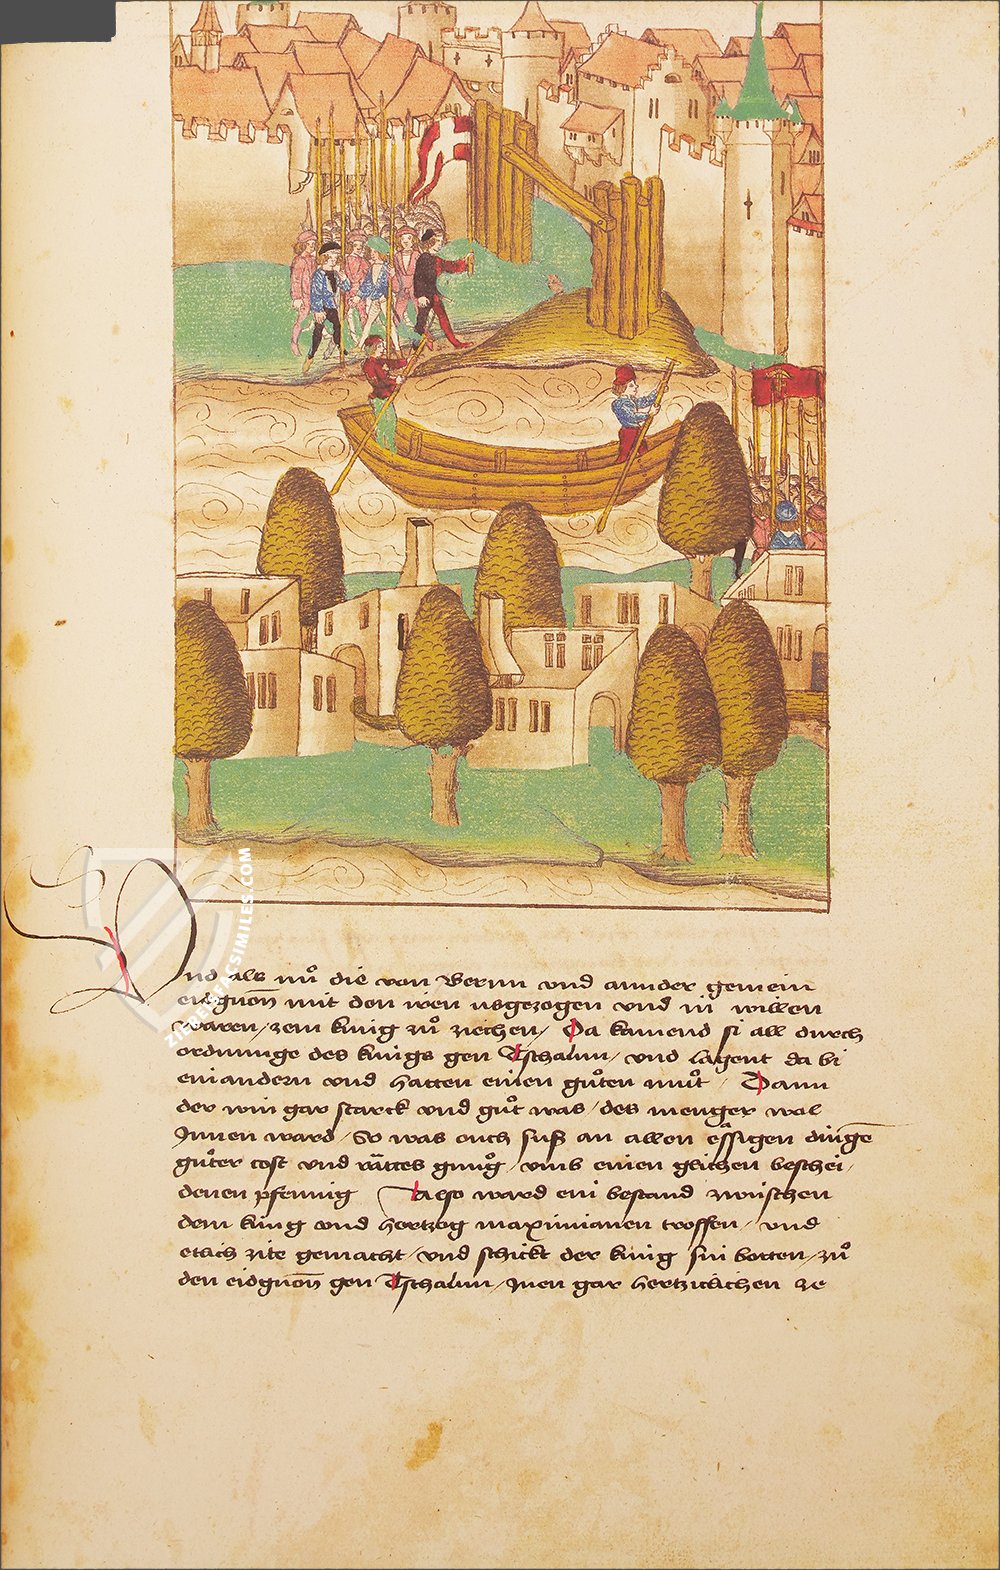 Und als nuͦ die von Bernn und annder gemein
eidgnon̄ mit den iren usgezogen und in willen
waren / zem kúnig zuͦ ziechen / Da kamend si all durch
ordnunge des kúnigs gen Tschalun / und lagent da bi
einandern und hatten einen guͦten muͦt / Dann
der win gar starck und guͦt was / des menger wol
Innen ward / So was ouch suß an allen essigen dingen̄
guͦter cost und rättes gnuͦg / umb einen glichen beschei-
denen pfennig Also ward ein bestand zwúschen
dem kúng und hertzog maximianen troffen / und
etlich zite gemacht / und schickt der kúnig sin botten / zuͦ
den eidgnon̄ gen Tschalun / Inen gar hertzicklichen ze
ZIEREIS FACSIMILES.COM